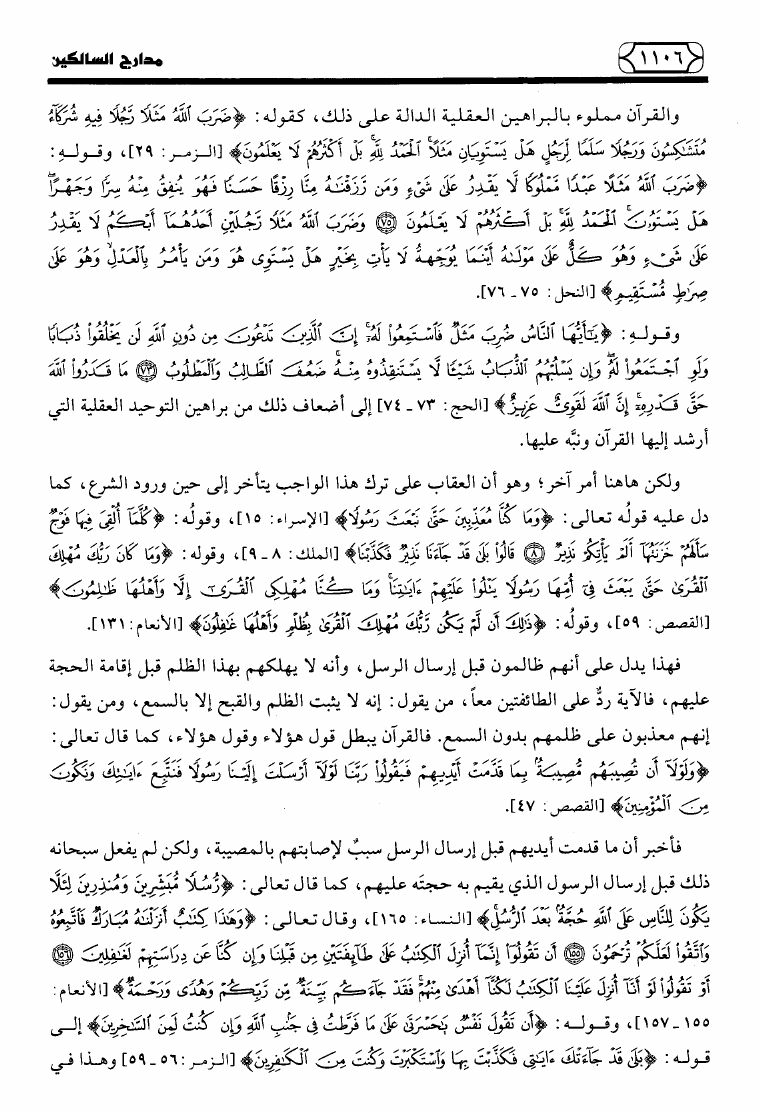 ١١٠٦ مدارج السالكين
والقرآن مملوء بالبراهين العقلية الدالة على ذلك، كقوله: ﴿ضَرَبَ ٱللَّهُ مَثَلًا رَّجُلًا فِيهِ شُرَكَآءُ
مُتَشَٰكِسُونَ وَرَجُلًا سَلَمًا لِّرَجُلٍ هَلْ يَسْتَوِيَانِ مَثَلًا ۚ ٱلْحَمْدُ لِلَّهِ ۚ بَلْ أَكْثَرُهُمْ لَا يَعْلَمُونَ﴾ [الـزمـر: ٢٩]، وقـولـهِ:
﴿ضَرَبَ ٱللَّهُ مَثَلًا عَبْدًا مَّمْلُوكًا لَّا يَقْدِرُ عَلَىٰ شَىْءٍ وَمَن رَّزَقْنَٰهُ مِنَّا رِزْقًا حَسَنًا فَهُوَ يُنفِقُ مِنْهُ سِرًّا وَجَهْرًا ۖ
هَلْ يَسْتَوُۥنَ ۚ ٱلْحَمْدُ لِلَّهِ ۚ بَلْ أَكْثَرُهُمْ لَا يَعْلَمُونَ ﴿٧٥﴾ وَضَرَبَ ٱللَّهُ مَثَلًا رَّجُلَيْنِ أَحَدُهُمَآ أَبْكَمُ لَا يَقْدِرُ
عَلَىٰ شَىْءٍ وَهُوَ كَلٌّ عَلَىٰ مَوْلَىٰهُ أَيْنَمَا يُوَجِّههُّ لَا يَأْتِ بِخَيْرٍ هَلْ يَسْتَوِى هُوَ وَمَن يَأْمُرُ بِٱلْعَدْلِ ۙ وَهُوَ عَلَىٰ
صِرَٰطٍ مُّسْتَقِيمٍ﴾ [النحل: ٧٥ ـ ٧٦].
وقـولـهِ: ﴿يَٰٓأَيُّهَا ٱلنَّاسُ ضُرِبَ مَثَلٌ فَٱسْتَمِعُوا۟ لَهُۥٓ ۚ إِنَّ ٱلَّذِينَ تَدْعُونَ مِن دُونِ ٱللَّهِ لَن يَخْلُقُوا۟ ذُبَابًا
وَلَوِ ٱجْتَمَعُوا۟ لَهُۥ ۖ وَإِن يَسْلُبْهُمُ ٱلذُّبَابُ شَيْـًٔا لَّا يَسْتَنقِذُوهُ مِنْهُ ۚ ضَعُفَ ٱلطَّالِبُ وَٱلْمَطْلُوبُ ﴿٧٣﴾ مَا قَدَرُوا۟ ٱللَّهَ
حَقَّ قَدْرِهِۦٓ ۗ إِنَّ ٱللَّهَ لَقَوِىٌّ عَزِيزٌ﴾ [الحج: ٧٣ ـ ٧٤] إلى أضعاف ذلك من براهين التوحيد العقلية التي
أرشد إليها القرآن ونبَّه عليها.
ولكن هاهنا أمر آخر؛ وهو أن العقاب على ترك هذا الواجب يتأخر إلى حين ورود الشرع، كما
دل عليه قولُه تعالى: ﴿وَمَا كُنَّا مُعَذِّبِينَ حَتَّىٰ نَبْعَثَ رَسُولًا﴾ [الإسراء: ١٥]، وقولُه: ﴿كُلَّمَآ أُلْقِىَ فِيهَا فَوْجٌ
سَأَلَهُمْ خَزَنَتُهَآ أَلَمْ يَأْتِكُمْ نَذِيرٌ ﴿٨﴾ قَالُوا۟ بَلَىٰ قَدْ جَآءَنَا نَذِيرٌ فَكَذَّبْنَا﴾ [الملك: ٨ ـ ٩]، وقوله: ﴿وَمَا كَانَ رَبُّكَ مُهْلِكَ
ٱلْقُرَىٰ حَتَّىٰ يَبْعَثَ فِىٓ أُمِّهَا رَسُولًا يَتْلُوا۟ عَلَيْهِمْ ءَايَٰتِنَا ۚ وَمَا كُنَّا مُهْلِكِى ٱلْقُرَىٰٓ إِلَّا وَأَهْلُهَا ظَٰلِمُونَ﴾
[القصص: ٥٩]، وقولُه: ﴿ذَٰلِكَ أَن لَّمْ يَكُن رَّبُّكَ مُهْلِكَ ٱلْقُرَىٰ بِظُلْمٍ وَأَهْلُهَا غَٰفِلُونَ﴾ [الأنعام: ١٣١].
فهذا يدل على أنهم ظالمون قبل إرسال الرسل، وأنه لا يهلكهم بهذا الظلم قبل إقامة الحجة
عليهم، فالآية ردٌّ على الطائفتين معاً، من يقول: إنه لا يثبت الظلم والقبح إلا بالسمع، ومن يقول:
إنهم معذبون على ظلمهم بدون السمع. فالقرآن يبطل قول هؤلاء وقول هؤلاء، كما قال تعالى:
﴿وَلَوْلَآ أَن تُصِيبَهُم مُّصِيبَةٌۢ بِمَا قَدَّمَتْ أَيْدِيهِمْ فَيَقُولُوا۟ رَبَّنَا لَوْلَآ أَرْسَلْتَ إِلَيْنَا رَسُولًا فَنَتَّبِعَ ءَايَٰتِكَ وَنَكُونَ
مِنَ ٱلْمُؤْمِنِينَ﴾ [القصص: ٤٧].
فأخبر أن ما قدمت أيديهم قبل إرسال الرسل سببٌ لإصابتهم بالمصيبة، ولكن لم يفعل سبحانه
ذلك قبل إرسال الرسول الذي يقيم به حجتَه عليهم، كما قال تعالى: ﴿رُّسُلًا مُّبَشِّرِينَ وَمُنذِرِينَ لِئَلَّا
يَكُونَ لِلنَّاسِ عَلَى ٱللَّهِ حُجَّةٌۢ بَعْدَ ٱلرُّسُلِ ۚ﴾ [النساء: ١٦٥]، وقال تـعـالـى: ﴿وَهَٰذَا كِتَٰبٌ أَنزَلْنَٰهُ مُبَارَكٌ فَٱتَّبِعُوهُ
وَٱتَّقُوا۟ لَعَلَّكُمْ تُرْحَمُونَ ﴿١٥٥﴾ أَن تَقُولُوٓا۟ إِنَّمَآ أُنزِلَ ٱلْكِتَٰبُ عَلَىٰ طَآئِفَتَيْنِ مِن قَبْلِنَا وَإِن كُنَّا عَن دِرَاسَتِهِمْ لَغَٰفِلِينَ ﴿١٥٦﴾
أَوْ تَقُولُوا۟ لَوْ أَنَّآ أُنزِلَ عَلَيْنَا ٱلْكِتَٰبُ لَكُنَّآ أَهْدَىٰ مِنْهُمْ ۚ فَقَدْ جَآءَكُم بَيِّنَةٌ مِّن رَّبِّكُمْ وَهُدًى وَرَحْمَةٌ﴾ [الأنعام:
١٥٥ـ١٥٧]، وقـولـه: ﴿أَن تَقُولَ نَفْسٌ يَٰحَسْرَتَىٰ عَلَىٰ مَا فَرَّطتُ فِى جَنۢبِ ٱللَّهِ وَإِن كُنتُ لَمِنَ ٱلسَّٰخِرِينَ﴾ إلـى
قـولـه: ﴿بَلَىٰ قَدْ جَآءَتْكَ ءَايَٰتِى فَكَذَّبْتَ بِهَا وَٱسْتَكْبَرْتَ وَكُنتَ مِنَ ٱلْكَٰفِرِينَ﴾ [الـزمر: ٥٦ ـ ٥٩] وهـذا فـي